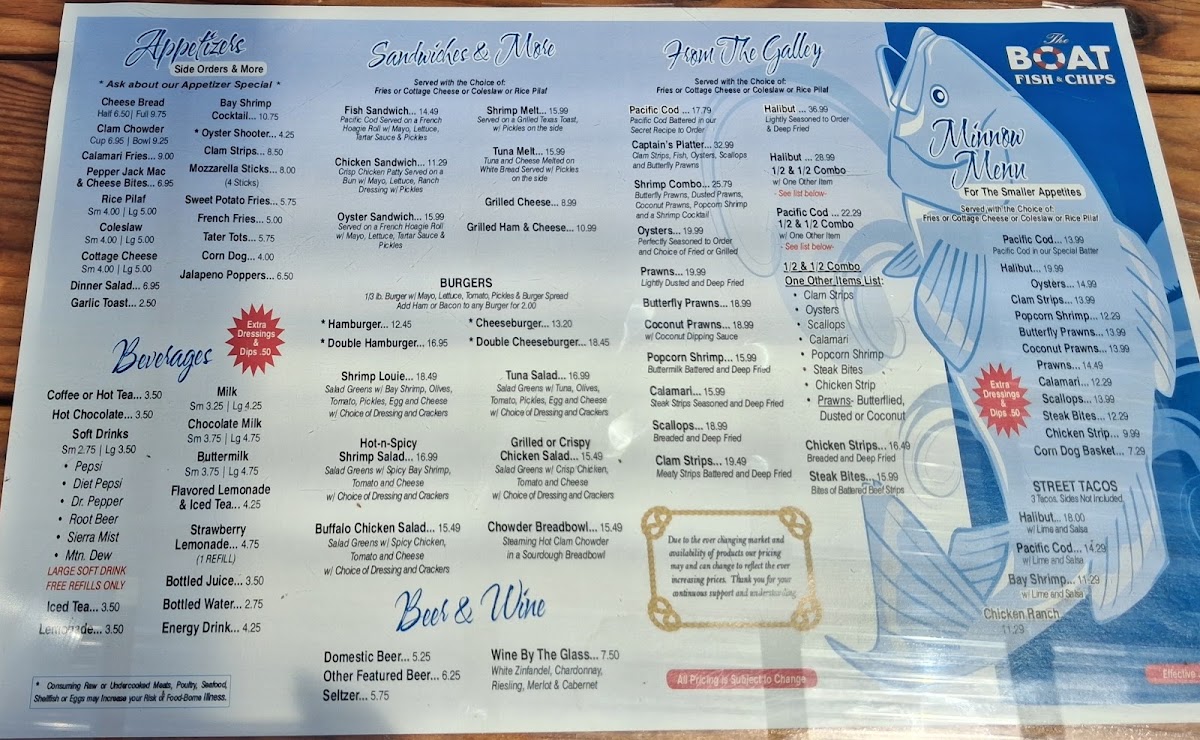 Appetizers
Side Orders & More
* Ask about our Appetizer Special *
Cheese Bread
Half 6.50| Full 9.75
Clam Chowder
Cup 6.95 | Bowl 9.25
Calamari Fries... 9.00
Pepper Jack Mac
& Cheese Bites... 6.95
Rice Pilaf
Sm 4.00 | Lg 5.00
Coleslaw
Sm 4.00 | Lg 5.00
Cottage Cheese
Sm 4.00 | Lg 5.00
Dinner Salad... 6.95
Garlic Toast... 2.50
Bay Shrimp
Cocktail... 10.75
* Oyster Shooter... 4.25
Clam Strips... 8.50
Mozzarella Sticks... 8.00
(4 Sticks)
Sweet Potato Fries... 5.75
French Fries... 5.00
Tater Tots... 5.75
Corn Dog... 4.00
Jalapeno Poppers... 6.50
Extra
Dressings
&
Dips .50
Beverages
Coffee or Hot Tea... 3.50
Hot Chocolate... 3.50
Soft Drinks
Sm 2.75 | Lg 3.50
• Pepsi
• Diet Pepsi
• Dr. Pepper
• Root Beer
• Sierra Mist
• Mtn. Dew
LARGE SOFT DRINK
FREE REFILLS ONLY
Iced Tea... 3.50
Lemonade... 3.50
Milk
Sm 3.25 | Lg 4.25
Chocolate Milk
Sm 3.75 | Lg 4.75
Buttermilk
Sm 3.75 | Lg 4.75
Flavored Lemonade
& Iced Tea... 4.25
Strawberry
Lemonade... 4.75
(1 REFILL)
Bottled Juice... 3.50
Bottled Water... 2.75
Energy Drink... 4.25
* Consuming Raw or Undercooked Meats, Poultry, Seafood,
Shellfish or Eggs may Increase your Risk of Food-Borne Illness.
Sandwiches & More
Served with the Choice of:
Fries or Cottage Cheese or Coleslaw or Rice Pilaf
Fish Sandwich... 14.49
Pacific Cod Served on a French
Hoagie Roll w/ Mayo, Lettuce,
Tartar Sauce & Pickles
Chicken Sandwich... 11.29
Crisp Chicken Patty Served on a
Bun w/ Mayo, Lettuce, Ranch
Dressing w/ Pickles
Oyster Sandwich... 15.99
Served on a French Hoagie Roll
w/ Mayo, Lettuce, Tartar Sauce &
Pickles
Shrimp Melt... 15.99
Served on a Grilled Texas Toast,
w/ Pickles on the side
Tuna Melt... 15.99
Tuna and Cheese Melted on
White Bread Served w/ Pickles
on the side
Grilled Cheese... 8.99
Grilled Ham & Cheese... 10.99
BURGERS
1/3 lb. Burger w/ Mayo, Lettuce, Tomato, Pickles & Burger Spread
Add Ham or Bacon to any Burger for 2.00
* Hamburger... 12.45
* Double Hamburger... 16.95
* Cheeseburger... 13.20
* Double Cheeseburger... 18.45
Shrimp Louie... 18.49
Salad Greens w/ Bay Shrimp, Olives,
Tomato, Pickles, Egg and Cheese
w/ Choice of Dressing and Crackers
Tuna Salad... 16.99
Salad Greens w/ Tuna, Olives,
Tomato, Pickles, Egg and Cheese
w/ Choice of Dressing and Crackers
Hot-n-Spicy
Shrimp Salad... 16.99
Salad Greens w/ Spicy Bay Shrimp,
Tomato and Cheese
w/ Choice of Dressing and Crackers
Grilled or Crispy
Chicken Salad... 15.49
Salad Greens w/ Crisp Chicken,
Tomato and Cheese
w/ Choice of Dressing and Crackers
Buffalo Chicken Salad... 15.49
Salad Greens w/ Spicy Chicken,
Tomato and Cheese
w/ Choice of Dressing and Crackers
Chowder Breadbowl... 15.49
Steaming Hot Clam Chowder
in a Sourdough Breadbowl
Beer & Wine
Domestic Beer... 5.25
Other Featured Beer... 6.25
Seltzer... 5.75
Wine By The Glass... 7.50
White Zinfandel, Chardonnay,
Riesling, Merlot & Cabernet
From The Galley
Served with the Choice of:
Fries or Cottage Cheese or Coleslaw or Rice Pilaf
Pacific Cod ... 17.79
Pacific Cod Battered in our
Secret Recipe to Order
Captain's Platter... 32.99
Clam Strips, Fish, Oysters, Scallops
and Butterfly Prawns
Shrimp Combo... 25.79
Butterfly Prawns, Dusted Prawns,
Coconut Prawns, Popcorn Shrimp
and a Shrimp Cocktail
Oysters... 19.99
Perfectly Seasoned to Order
and Choice of Fried or Grilled
Prawns... 19.99
Lightly Dusted and Deep Fried
Butterfly Prawns... 18.99
Coconut Prawns... 18.99
w/ Coconut Dipping Sauce
Popcorn Shrimp... 15.99
Buttermilk Battered and Deep Fried
Calamari... 15.99
Steak Strips Seasoned and Deep Fried
Scallops... 18.99
Breaded and Deep Fried
Clam Strips... 19.49
Meaty Strips Battered and Deep Fried
Halibut ... 36.99
Lightly Seasoned to Order
& Deep Fried
Halibut ... 28.99
1/2 & 1/2 Combo
w/ One Other Item
- See list below-
Pacific Cod ... 22.29
1/2 & 1/2 Combo
w/ One Other Item
- See list below-
1/2 & 1/2 Combo
One Other Items List:
• Clam Strips
• Oysters
• Scallops
• Calamari
• Popcorn Shrimp
• Steak Bites
• Chicken Strip
• Prawns- Butterflied,
Dusted or Coconut
Chicken Strips... 16.49
Breaded and Deep Fried
Steak Bites... 15.99
Bites of Battered Beef Strips
Due to the ever changing market and
availability of products our pricing
may and can change to reflect the ever
increasing prices. Thank you for your
continuous support and understanding.
All Pricing is Subject to Change
The
BOAT
FISH & CHIPS
Minnow
Menu
For The Smaller Appetites
Served with the Choice of:
Fries or Cottage Cheese or Coleslaw or Rice Pilaf
Pacific Cod... 13.99
Pacific Cod in our Special Batter
Halibut... 19.99
Oysters... 14.99
Clam Strips... 13.99
Popcorn Shrimp... 12.29
Butterfly Prawns... 13.99
Coconut Prawns... 13.99
Prawns... 14.49
Calamari... 12.29
Scallops... 13.99
Steak Bites... 12.29
Chicken Strip... 9.99
Corn Dog Basket... 7.29
Extra
Dressings
&
Dips .50
STREET TACOS
3 Tacos. Sides Not Included
Halibut... 18.00
w/ Lime and Salsa
Pacific Cod... 14.29
w/ Lime and Salsa
Bay Shrimp... 11.29
w/ Lime and Salsa
Chicken Ranch...
11.29
Effective